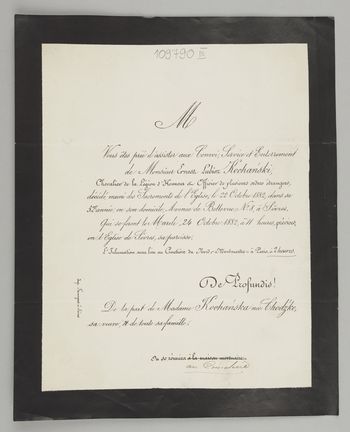 109790 III
M
Vous êtes prié d'assister aux Convoi, Service et Enterrement
de Monsieur Ernest Lubicz Kochański,
Chevalier de la Légion d'Honneur et Officier de plusieurs ordres étrangers,
décédé muni des Sacrements de l'Eglise, le 22 Octobre 1882, dans sa
année, en son domicile, Avenue de Bellevue, N° à Sèvres,
Qui se feront le Mardi, 24 Octobre 1882, à 11 heures, précises,
en l'Eglise de Sèvres, sa paroisse;
L'Inhumation aura lieu au Cimetière du Nord, Montmartre à Paris, à 2 heures.
De Profundis!
De la part de Madame Kochańska née Chodźko,
sa veuve, et de toute sa famille.
On se réunira à la maison mortuaire.
au